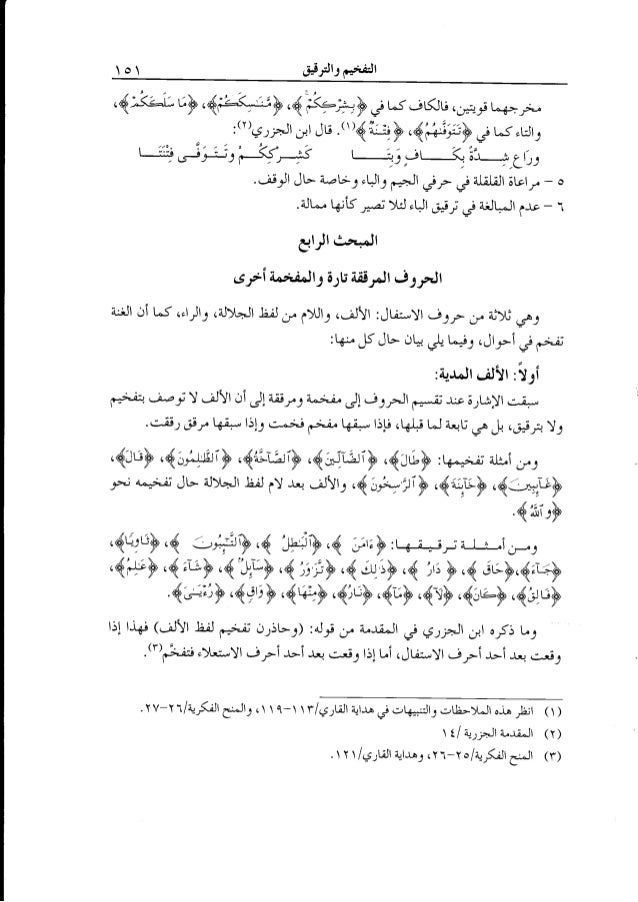 التفخيم والترقيق
١٥١
مخرجهما قويتين، فالكاف كما في ﴿بِشِرْكِكُمْ﴾، ﴿مَّنَـٰسِكَكُمْ﴾، ﴿مَا سَلَكَكُمْ﴾،
والتاء كما في ﴿تَتَوَفَّىٰهُمُ﴾، ﴿فِتْنَةً﴾(١). قال ابن الجزري(٢):
وراعِ شِدَّةً بِكَـــافٍ وَبِتَـــا كَشِـرْكِكُـمْ وَتَـتَـوَفَّـى فِتْنَتَـــا
٥ - مراعاة القلقلة في حرفي الجيم والباء وخاصة حال الوقف.
٦ - عدم المبالغة في ترقيق الباء لئلا تصير كأنها ممالة.
المبحث الرابع
الحروف المرققة تارة والمفخمة أخرى
وهي ثلاثة من حروف الاستفال: الألف، واللام من لفظ الجلالة، والراء، كما أن الغنة
تفخم في أحوال، وفيما يلي بيان حال كل منها:
أولاً: الألف المدية:
سبقت الإشارة عند تقسيم الحروف إلى مفخمة ومرققة إلى أن الألف لا توصف بتفخيم
ولا بترقيق، بل هي تابعة لما قبلها، فإذا سبقها مفخم فخمت وإذا سبقها مرقق رققت.
ومن أمثلة تفخيمها: ﴿طَالَ﴾، ﴿ٱلضَّآلِّينَ﴾، ﴿ٱلصَّآخَّةُ﴾، ﴿ٱلظَّـٰلِمُونَ﴾، ﴿قَالَ﴾،
﴿غَآئِبِينَ﴾، ﴿خَآئِنَةَ﴾، ﴿ٱلرَّٰسِخُونَ﴾، والألف بعد لام لفظ الجلالة حال تفخيمه نحو
﴿وَٱللَّهُ﴾.
ومـن أمثـلـة تـرقـيـقـهـا: ﴿ءَامَنَ﴾، ﴿ٱلْبَـٰطِلُ﴾، ﴿ٱلتَّـٰٓئِبُونَ﴾، ﴿ثَاوِيًا﴾،
﴿جَآءَ﴾، ﴿حَاقَ﴾، ﴿دَارُ﴾، ﴿ذَٰلِكَ﴾، ﴿تَّزَٰوَرُ﴾، ﴿سَآئِلٌۢ﴾، ﴿شَآءَ﴾، ﴿عَـٰلِمُ﴾،
﴿فَالِقُ﴾، ﴿كَانَ﴾، ﴿لَآ﴾، ﴿مَآ﴾، ﴿نَارُ﴾، ﴿مِنْهَا﴾، ﴿وَاقٍ﴾، ﴿رُءْيَـٰىَ﴾.
وما ذكره ابن الجزري في المقدمة من قوله: (وحاذرن تفخيم لفظ الألف) فهذا إذا
وقعت بعد أحد أحرف الاستفال، أما إذا وقعت بعد أحد أحرف الاستعلاء فتفخَّم(٣).
(١) انظر هذه الملاحظات والتنبيهات في هداية القاري/١١٣-١١٩، والمنح الفكرية/٢٦-٢٧.
(٢) المقدمة الجزرية /١٤
(٣) المنح الفكرية/٢٥-٢٦، وهداية القاري/١٢١.